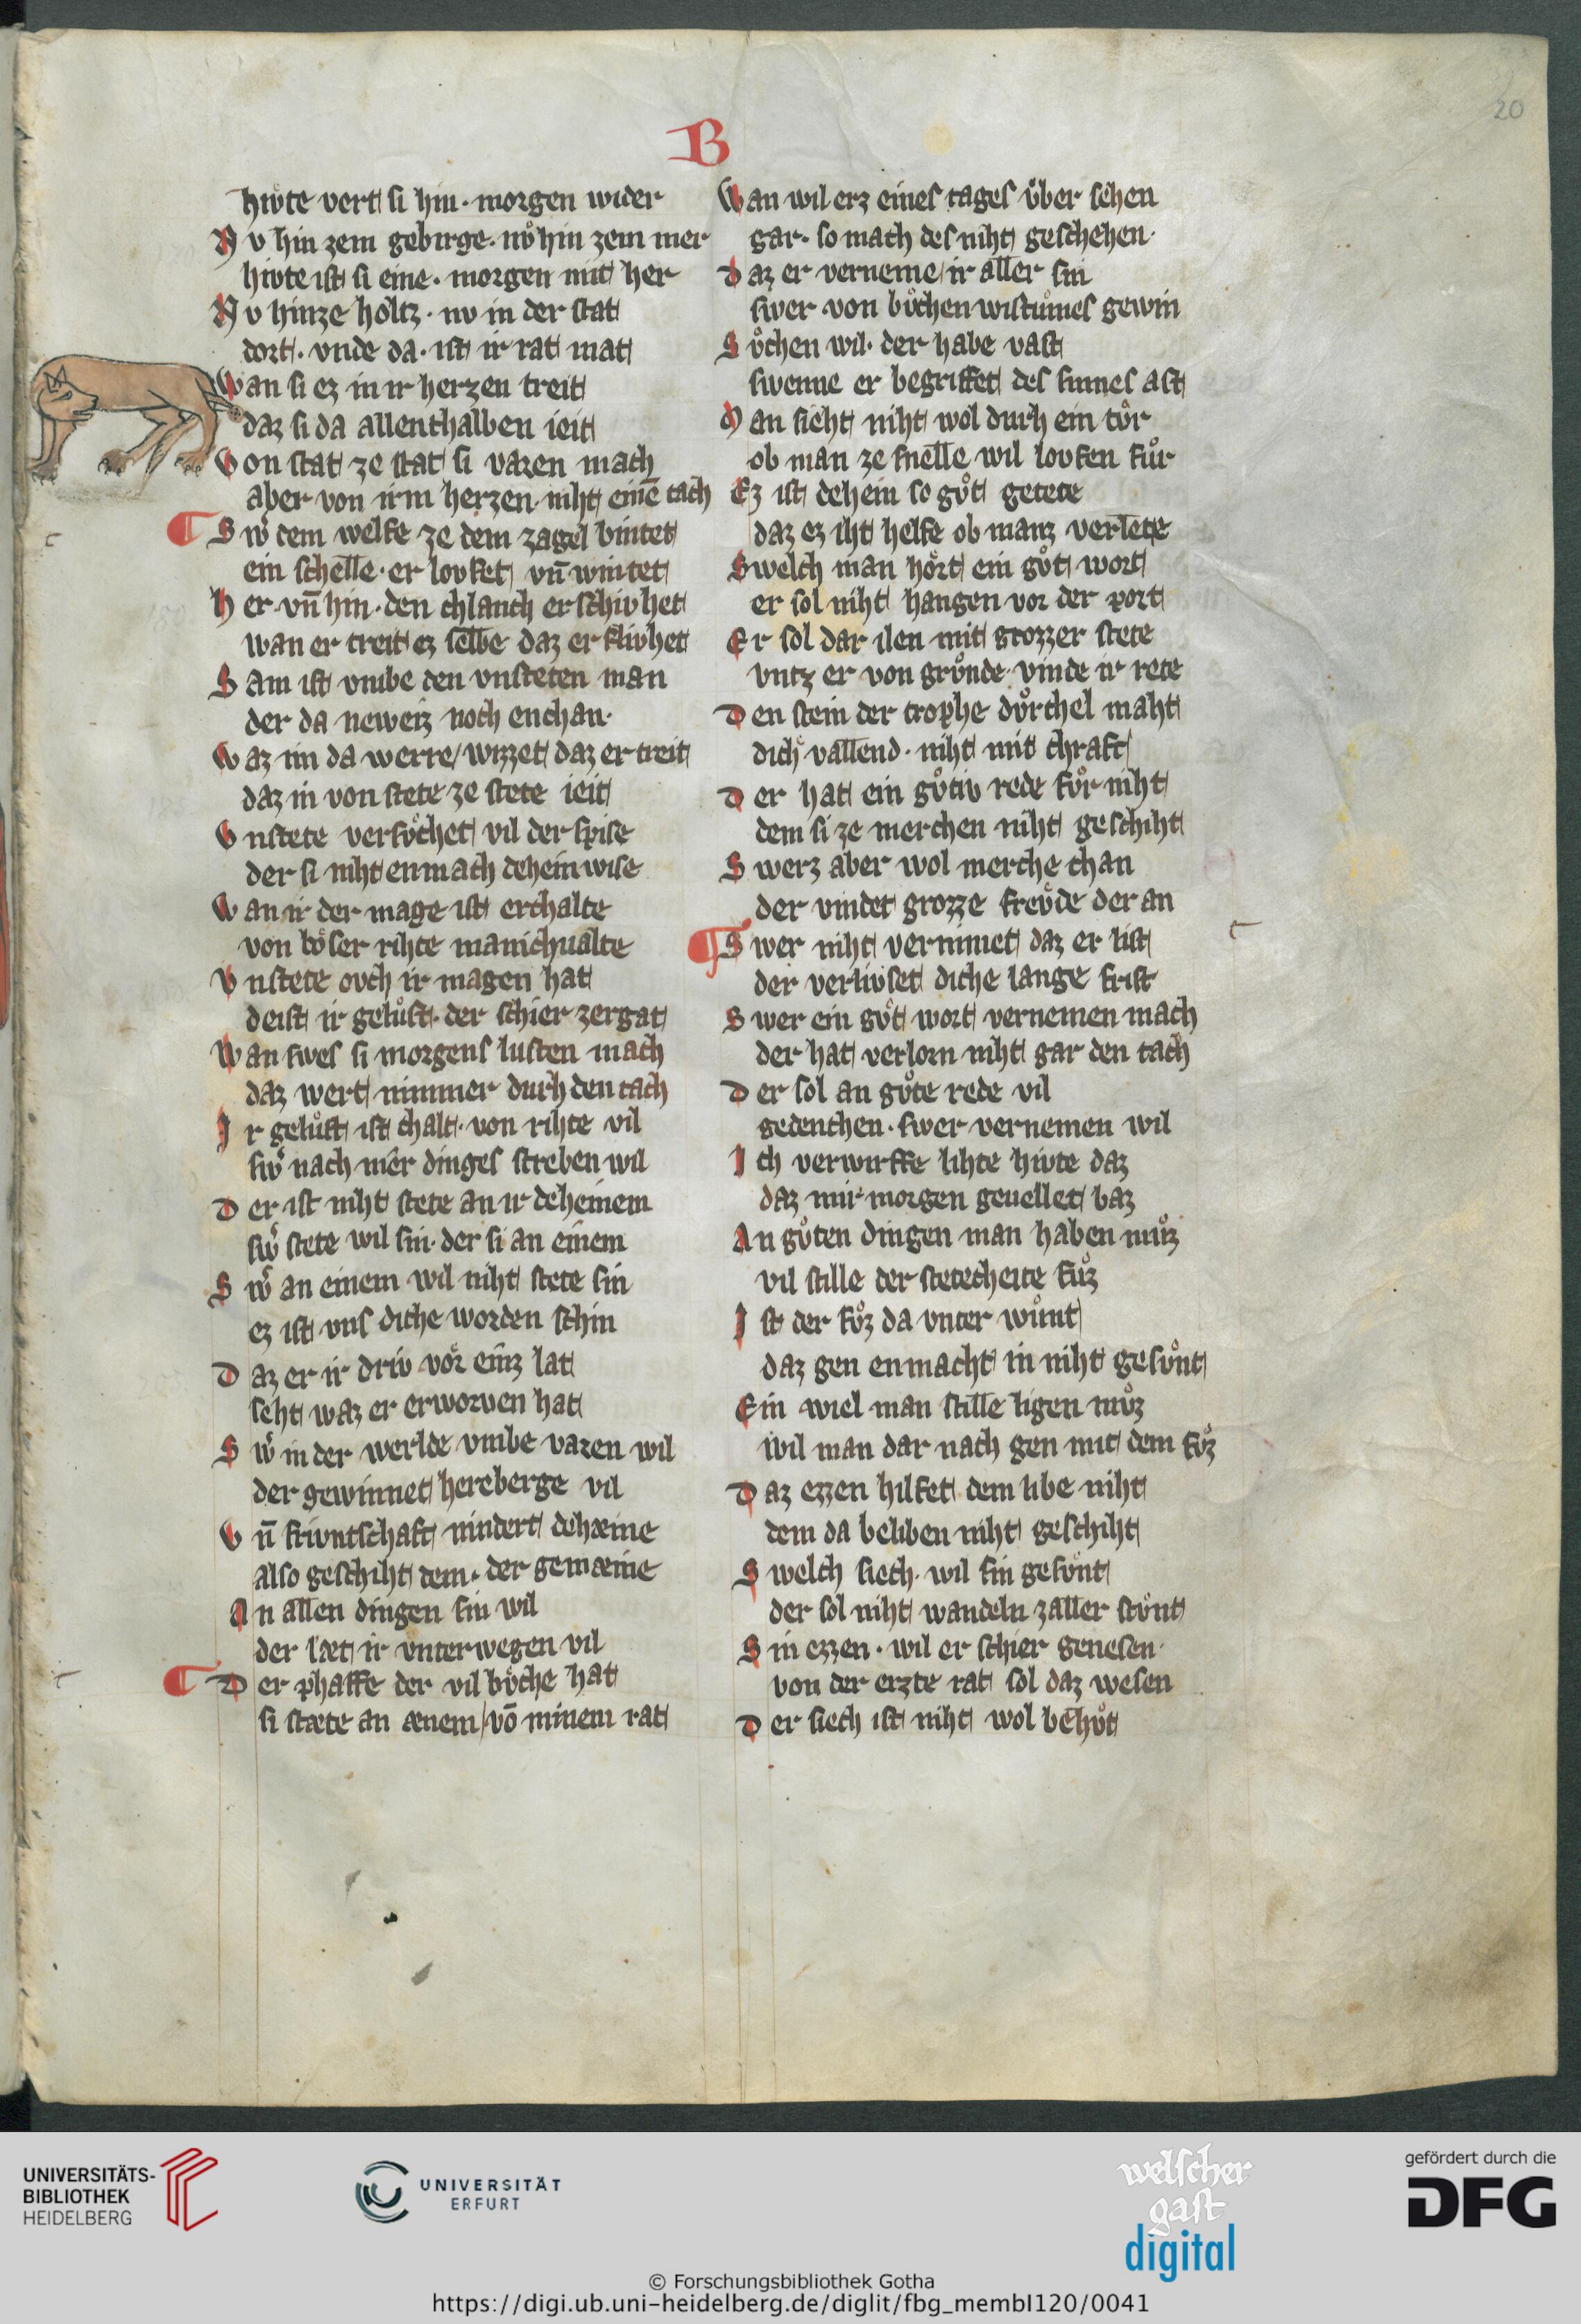 20
B
hivte vert si hin · morgen wider
Nv hin zem gebirge · nv hin zem mer
hivte ist si eine · morgen mit her
Nv hinze holtz · nv in der stat
dort · vnde da · ist ir rat mat
Wan si ez in ir herzen treit
daz si da allenthalben ieit
Von stat ze stat si varen mach
aber von irm herzen niht einē tach
Swͤ dem welfe ze dem zagel bintet
ein schelle · er lovfet vn̄ wintet
her vn̄ hin · den chlanch er schivhet
wan er treit ez selbe daz er flivhet
Sam ist vmbe den vnsteten man
der da neweiz noch enchan ·
Waz im da werre / wizzet daz er treit
daz in von stete ze stete ieit
Vnstete versvͦchet vil der spise
der si niht enmach dehein wise
Wan ir der mage ist erchalte
von boͤser rihte manichualte
Vnstete ovch ir magen hat
deist ir gelvͦst · der schier zergat
Wan swes si morgens lusten mach
daz wert nimmer durh den tach
Ir gelvͦst ist chalt · von rihte vil
swͤ nach mer dinges streben wil
Der ist niht stete an ir deheinem
swͤ stete wil sin · der si an einem
Swͤ an einem wil niht stete sin
ez ist vns diche worden schin
Daz er ir driv vor einz lat
seht waz er erworven hat
Swͤ in der werlde vmbe varen wil
der gewinnet hereberge vil
Vn̄ frivntschaft nindert dehæine
also geschiht dem · der gemæine
An allen dingen sin wil
der læt ir vnterwegen vil
Der phaffe der vil bvͦche hat
si stæte an ænem / vō minem rat
Wan wil erz eines tages vͤber sehen
gar · so mach des niht geschehen ·
daz er verneme / ir aller sin
swer von bvͦchen wistvͦmes gewin
Svͦchen wil · der habe vast
swenne er begriffet des sinnes ast
Man sieht niht wol durh ein tor
ob man ze snelle wil lovfen fvͤr
Ez ist dehein so gvͦt getete
daz ez iht helfe ob manz verlete
Swelch man hort ein gvͦt wort
er sol niht hangen vor der port
Er sol dar ilen mit grozzer stete
vntz er von grvͦnde vinde ir rete
Den stein der trophe dvͤrchel maht
dich vallend · niht mit chraft
Der hat ein gvͦtiv rede fvͤr niht
dem si ze merchen niht geschiht
Swerz aber wol merche chan
der vindet grozze frevͦde der an
Swer niht vernimet daz er list
der verlivset diche lange frist
Swer ein gvͦt wort vernemen mach
der hat verlorn niht gar den tach
Der sol an gvͦte rede vil
gedenchen · swer vernemen wil
Ich verwirffe lihte hivte daz
daz mir morgen geuellet baz
An gvͦten dingen man haben mvͦz
vil stille der stetecheite fvͦz
Ist der fvͦz da vnter wvͦnt
daz gen enmacht in niht gesvͦnt
Ein wiel man stille ligen mvͦz
wil man dar nach gen mit dem fvͦz
Daz ezzen hilfet dem libe niht
dem da beliben niht geschiht
Swelch siech · wil sin gesvͦnt
der sol niht wandeln zaller stvͦnt
Sin ezzen · wil er schier genesen ·
von der erzte rat sol daz wesen
Der siech ist niht wol behvͦt
UNIVERSITÄTS-
BIBLIOTHEK
HEIDELBERG
UNIVERSITÄT
ERFURT
welscher
gast
digital
gefördert durch die
DFG
© Forschungsbibliothek Gotha
https://digi.ub.uni-heidelberg.de/diglit/fbg_membI120/0041